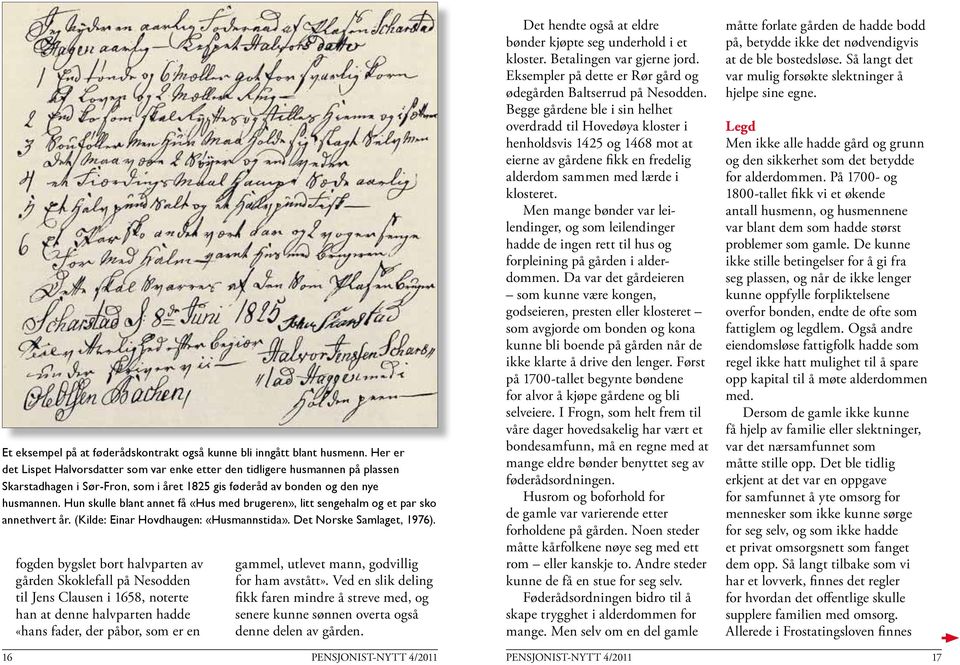 Jeg Nyder en aarlig Føderaad af Pladsen Scharstad
Hagen aarlig Lispet Halvorsdatter
1 End tønde og 6 Mæller got for svarlig Korn
af Loven og 2 Mæller Rug
2 End ko som skal
3
Det maa være 2
4 et Fiærdings Maal Hampe Sæde aarlig
5 Et Halv pund Salt og et Halvpund fisk
6 Et Par sko andet vært aar og 2 voger senge
For med Halm varnt Hus med brugeren
Dette skal Svarres af den Som Plasen bruger
Scharstad d. 8de Juni 1825
efter begiær Halvor Jenssen Schars
under skriver vii "tad Haggen med i
Ole Olsen Bachen Holden peen
Et eksempel på at føderådskontrakt også kunne bli inngått blant husmenn. Her er
det Lispet Halvorsdatter som var enke etter den tidligere husmannen på plassen
Skarstadhagen i Sør-Fron, som i året 1825 gis føderåd av bonden og den nye
husmannen. Hun skulle blant annet få «Hus med brugeren», litt sengehalm og et par sko
annethvert år. (Kilde: Einar Hovdhaugen: «Husmannstida». Det Norske Samlaget, 1976).
fogden bygslet bort halvparten av
gården Skoklefall på Nesodden
til Jens Clausen i 1658, noterte
han at denne halvparten hadde
«hans fader, der påbor, som er en
gammel, utlevet mann, godvillig
for ham avstått». Ved en slik deling
fikk faren mindre å streve med, og
senere kunne sønnen overta også
denne delen av gården.
16 PENSJONIST-NYTT 4/2011
Det hendte også at eldre
bønder kjøpte seg underhold i et
kloster. Betalingen var gjerne jord.
Eksempler på dette er Rør gård og
ødegården Baltserrud på Nesodden.
Begge gårdene ble i sin helhet
overdradd til Hovedøya kloster i
henholdsvis 1425 og 1468 mot at
eierne av gårdene fikk en fredelig
alderdom sammen med lærde i
klosteret.
Men mange bønder var lei-
lendinger, og som leilendinger
hadde de ingen rett til hus og
forpleining på gården i alder-
dommen. Da var det gårdeieren
– som kunne være kongen,
godseieren, presten eller klosteret –
som avgjorde om bonden og kona
kunne bli boende på gården når de
ikke klarte å drive den lenger. Først
på 1700-tallet begynte bøndene
for alvor å kjøpe gårdene og bli
selveiere. I Frogn, som helt frem til
våre dager hovedsakelig har vært et
bondesamfunn, må en regne med at
mange eldre bønder benyttet seg av
føderådsordningen.
Husrom og boforhold for
de gamle varierte etter
forholdene på gården. Noen steder
måtte kårfolkene nøye seg med ett
rom – eller kanskje to. Andre steder
kunne de få en stue for seg selv.
Føderådsordningen bidro til å
skape trygghet i alderdommen for
mange. Men selv om en del gamle
måtte forlate gården de hadde bodd
på, betydde ikke det nødvendigvis
at de ble bostedsløse. Så langt det
var mulig forsøkte slektninger å
hjelpe sine egne.
Legd
Men ikke alle hadde gård og grunn
og den sikkerhet som det betydde
for alderdommen. På 1700- og
1800-tallet fikk vi et økende
antall husmenn, og husmennene
var blant dem som hadde størst
problemer som gamle. De kunne
ikke stille betingelser for å gi fra
seg plassen, og når de ikke lenger
kunne oppfylle forpliktelsene
overfor bonden, endte de ofte som
fattiglem og legdlem. Også andre
eiendomsløse fattigfolk hadde som
regel ikke hatt mulighet til å spare
opp kapital til å møte alderdommen
med.
Dersom de gamle ikke kunne
få hjelp av familie eller slektninger,
var det nærsamfunnet som
måtte tre støttende til. Det var
erkjent at det var en oppgave
for samfunnet å ta vare på de
menneskene som ikke kunne sørge
for seg selv, og som ikke hadde
et privat omsorgsnett som fanget
dem opp. Så langt tilbake som vi
har et lovverk, finnes det regler for
hvordan det offentlige skulle
supplere familien med omsorg.
Allerede i Frostatingsloven finnes
PENSJONIST-NYTT 4/2011 17